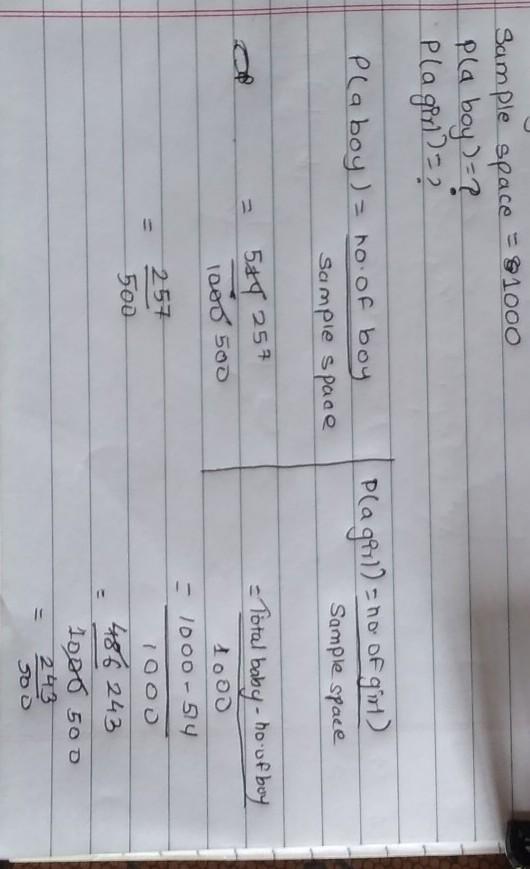 Sample space = 1000
P(a boy) = ?
P(a girl) = ?
P(a boy) = no. of boy
sample space
= 514 257
1000 500
= 257
500
P(a girl) = no. of girl
Sample space
= Total baby - no. of boy
1000
= 1000 - 514
1000
= 486 243
1000 500
= 243
500